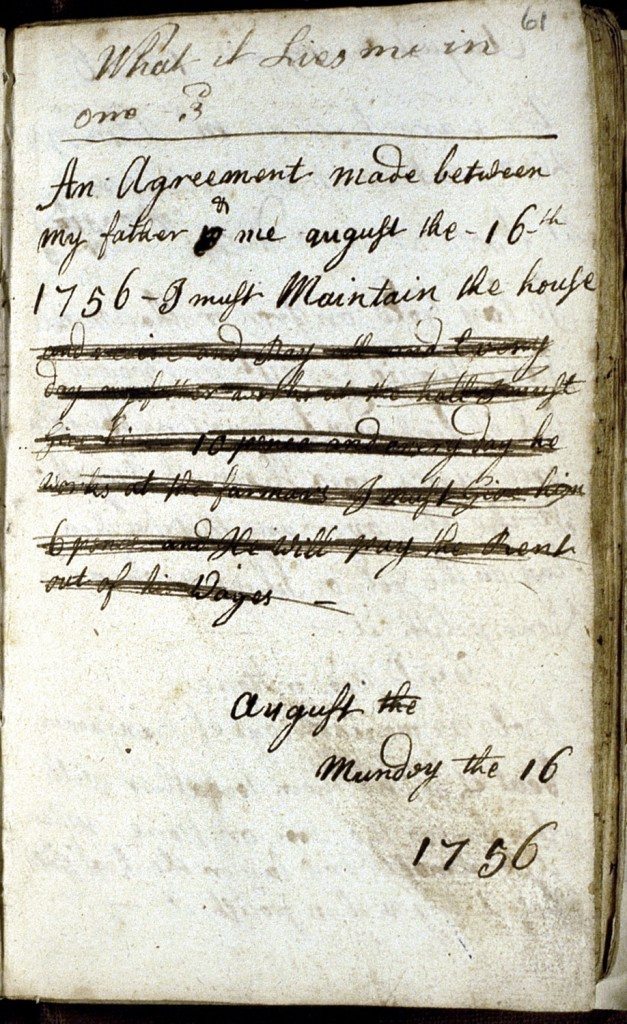 61
What it Lies me in
one - ?
An Agreement made between
my father & me august the - 16 - th
1756 - I must Maintain the house
and Pay all and Every
day my father works at the hall I must
Give him 10 pence and every day he
works at the farmars I must Give him
6 pence and He will pay the Rent
out of his Wages -
August the
Munday the 16
1756